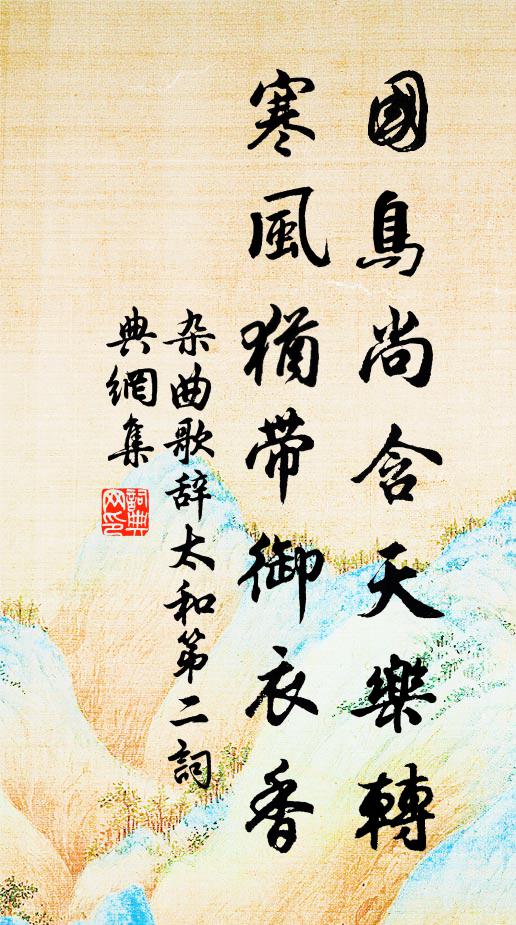 國鳥尚含天樂轉
寒風猶帶御衣香
杂曲歌辞太和第二詞
典網集
詞典
网印